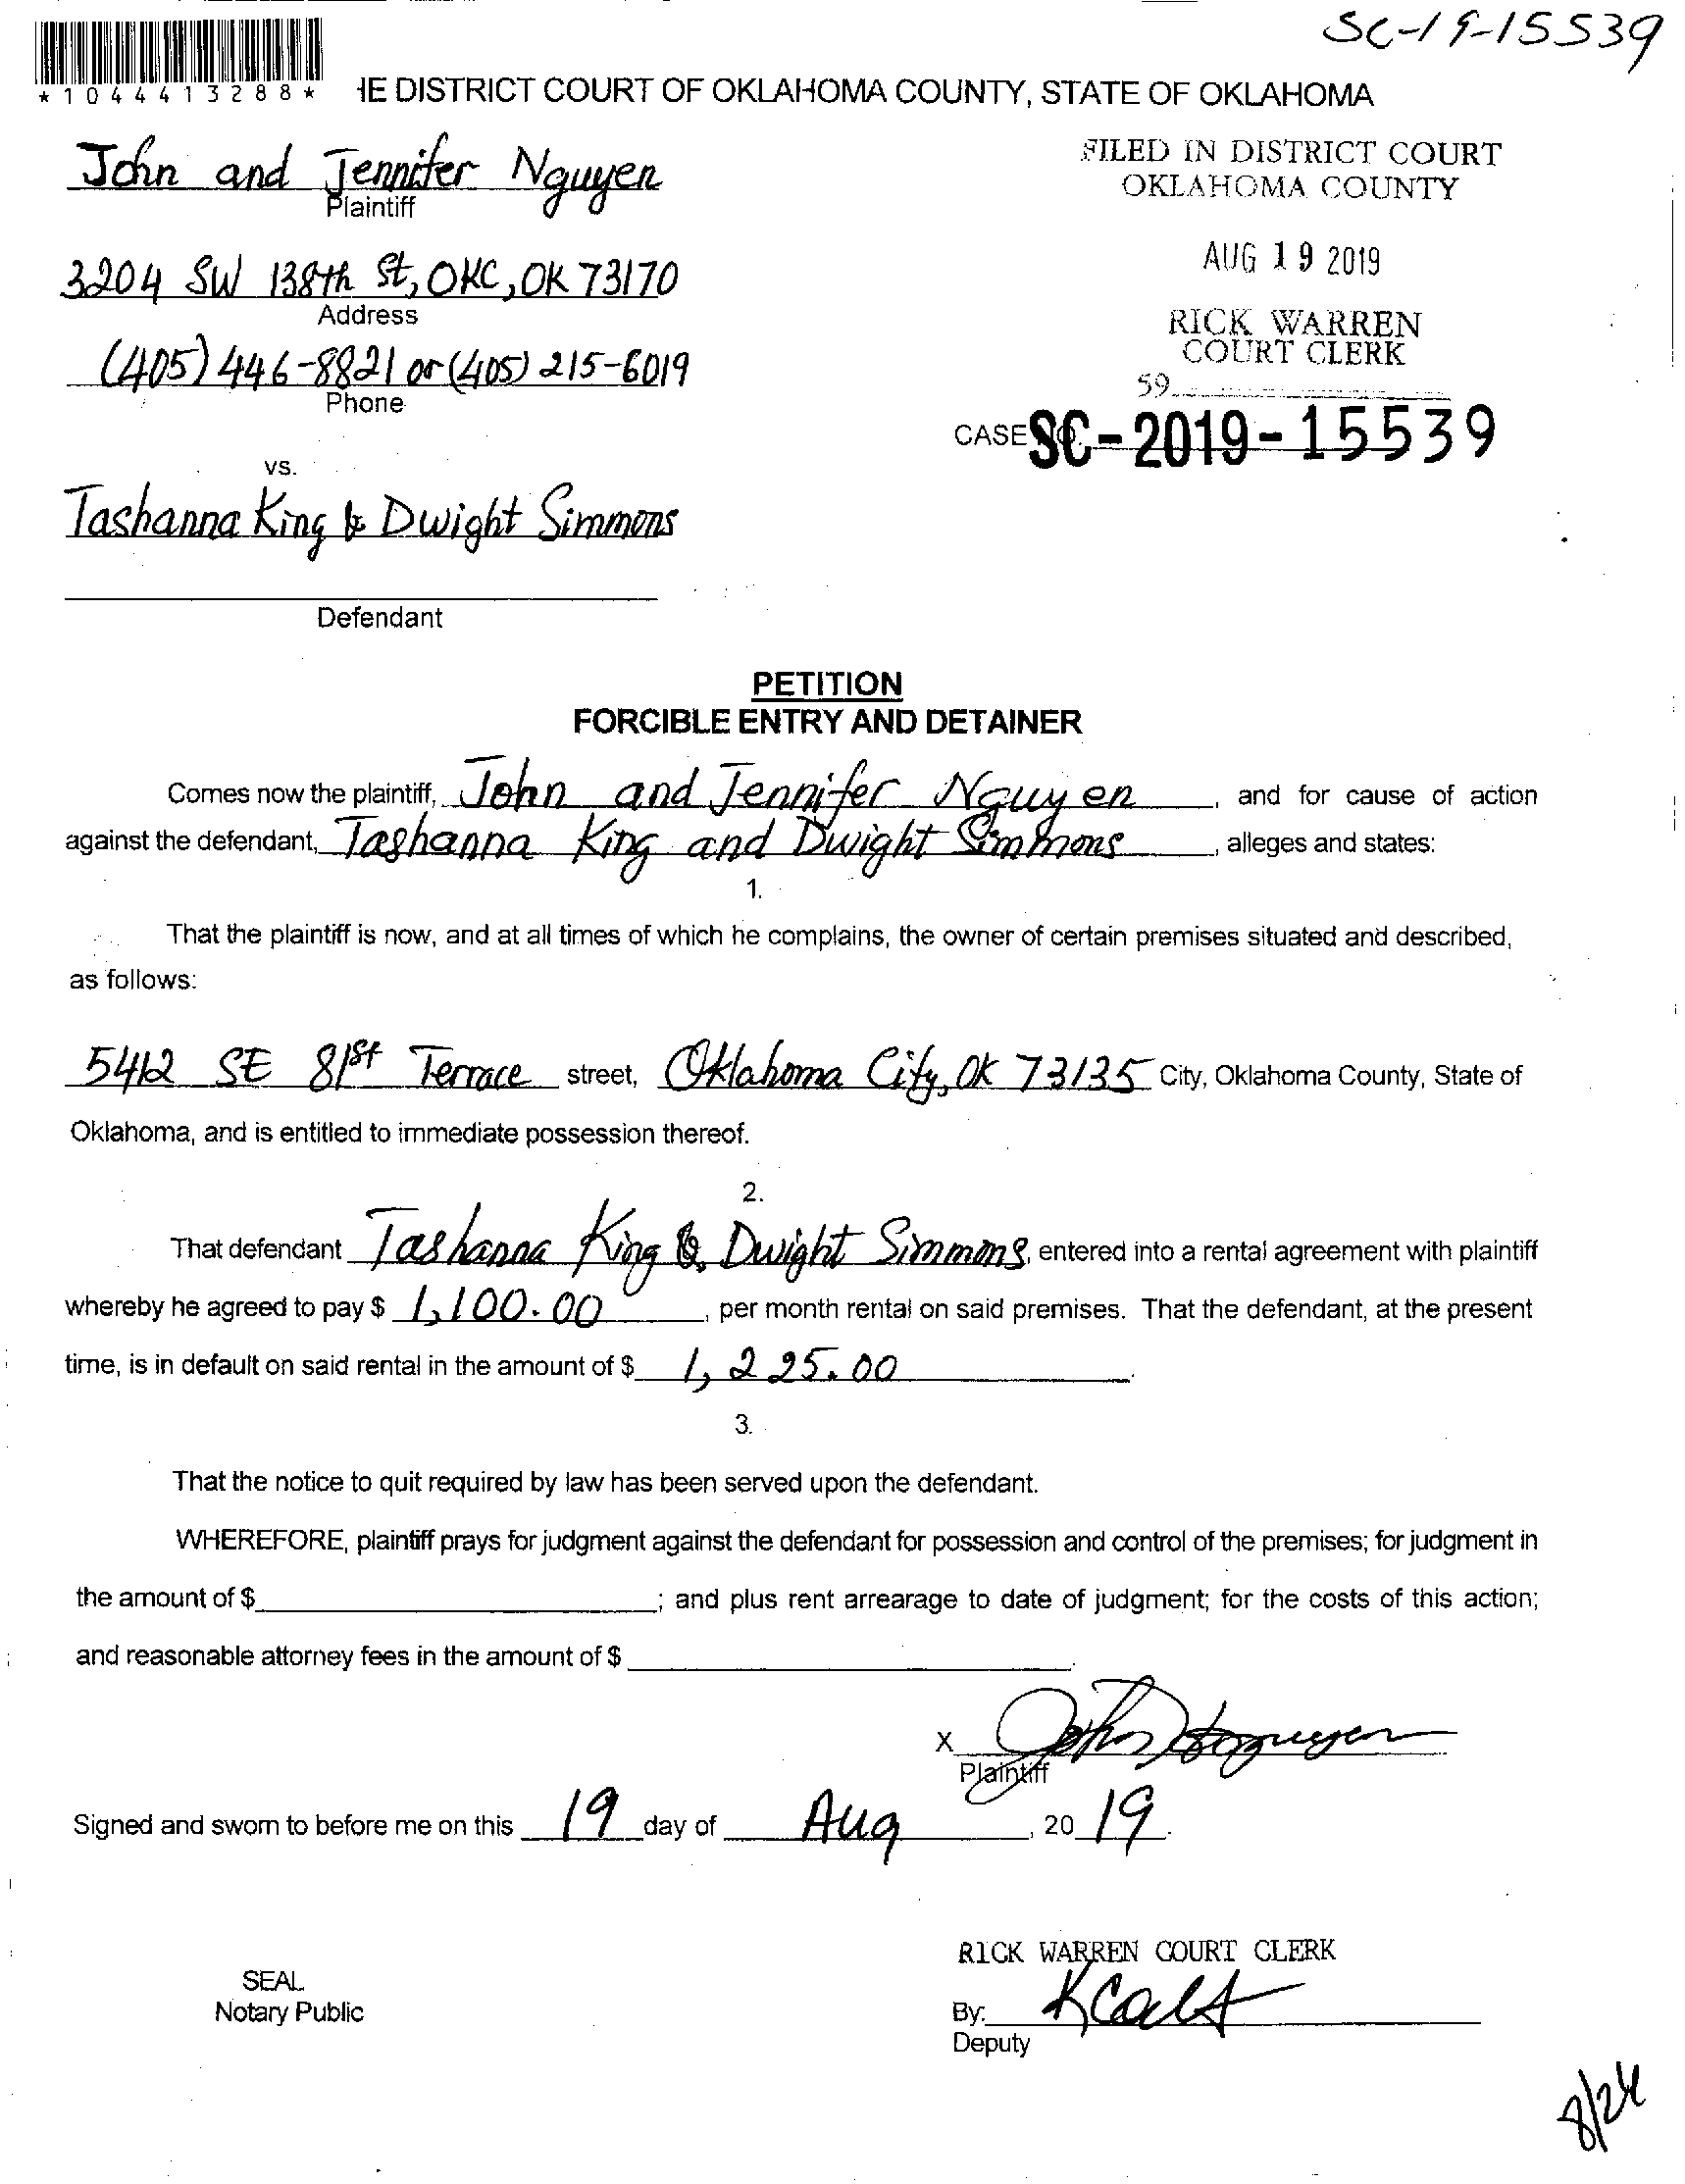 SC-19-15539
*1044413288*
HE DISTRICT COURT OF OKLAHOMA COUNTY, STATE OF OKLAHOMA
John and Jennifer Nguyen
Plaintiff
FILED IN DISTRICT COURT
OKLAHOMA COUNTY
3204 SW 138th St, OKC, OK 73170
Address
AUG 19 2019
(405) 446-8821 or (405) 215-6019
Phone
RICK WARREN
COURT CLERK
59
CASE NO. SC-2019-15539
VS.
Tashanna King & Dwight Simmons
Defendant
PETITION
FORCIBLE ENTRY AND DETAINER
Comes now the plaintiff, John and Jennifer Nguyen, and for cause of action
against the defendant, Tashanna King and Dwight Simmons, alleges and states:
1.
That the plaintiff is now, and at all times of which he complains, the owner of certain premises situated and described,
as follows:
5412 SE 81st Terrace street, Oklahoma City, OK 73135 City, Oklahoma County, State of
Oklahoma, and is entitled to immediate possession thereof.
2.
That defendant Tashanna King & Dwight Simmons, entered into a rental agreement with plaintiff
whereby he agreed to pay $ 1,100.00, per month rental on said premises. That the defendant, at the present
time, is in default on said rental in the amount of $ 1,225.00.
3.
That the notice to quit required by law has been served upon the defendant.
WHEREFORE, plaintiff prays for judgment against the defendant for possession and control of the premises; for judgment in
the amount of $ ; and plus rent arrearage to date of judgment; for the costs of this action;
and reasonable attorney fees in the amount of $ .
X John Nguyen
Plaintiff
Signed and sworn to before me on this 19 day of Aug, 20 19.
RICK WARREN COURT CLERK
SEAL
Notary Public
By:
Deputy